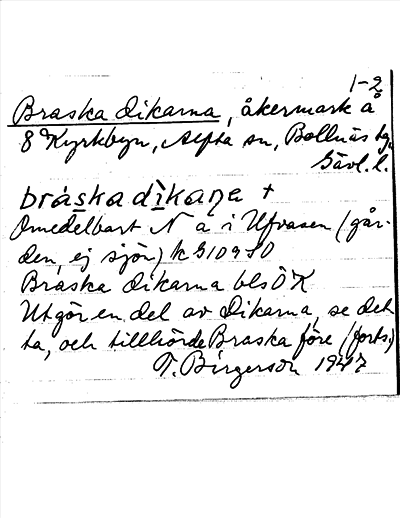 1-2
Braska dikarna, åkermark å
8 Kyrkbyn, Alfta sn, Bollnäs tg,
Gävl. l.
bráskadìkaṇa +
Omedelbart N a i Ufvasen (går-
den, ej sjön)
Braska dikarna bls Ö K
Utgör en del av Dikarna, se det-
ta, och tillhörde Braska före (forts.)
T. Birgerson 1947